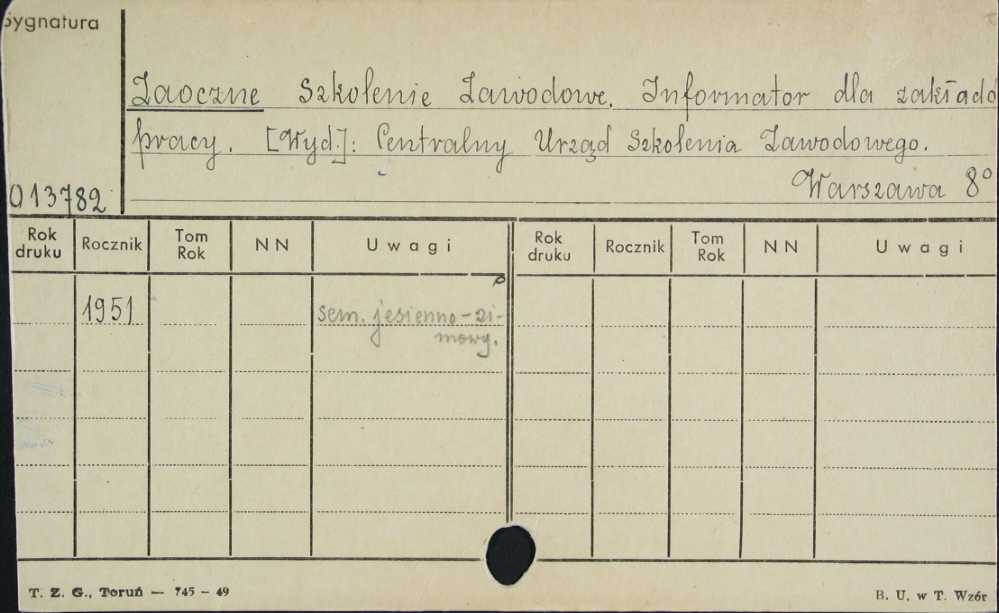 Sygnatura
Zaoczne Szkolenie Zawodowe. Informator dla zakłado
pracy. [Wyd.]: Centralny Urząd Szkolenia Zawodowego.
Warszawa 8°
013782
Rok druku Rocznik Tom Rok NN Uwagi Rok druku Rocznik Tom Rok NN Uwagi
1951 sem. jesienno-zi-
mowy.
T. Z. G., Toruń — 745 — 49 B. U. w T. Wzór